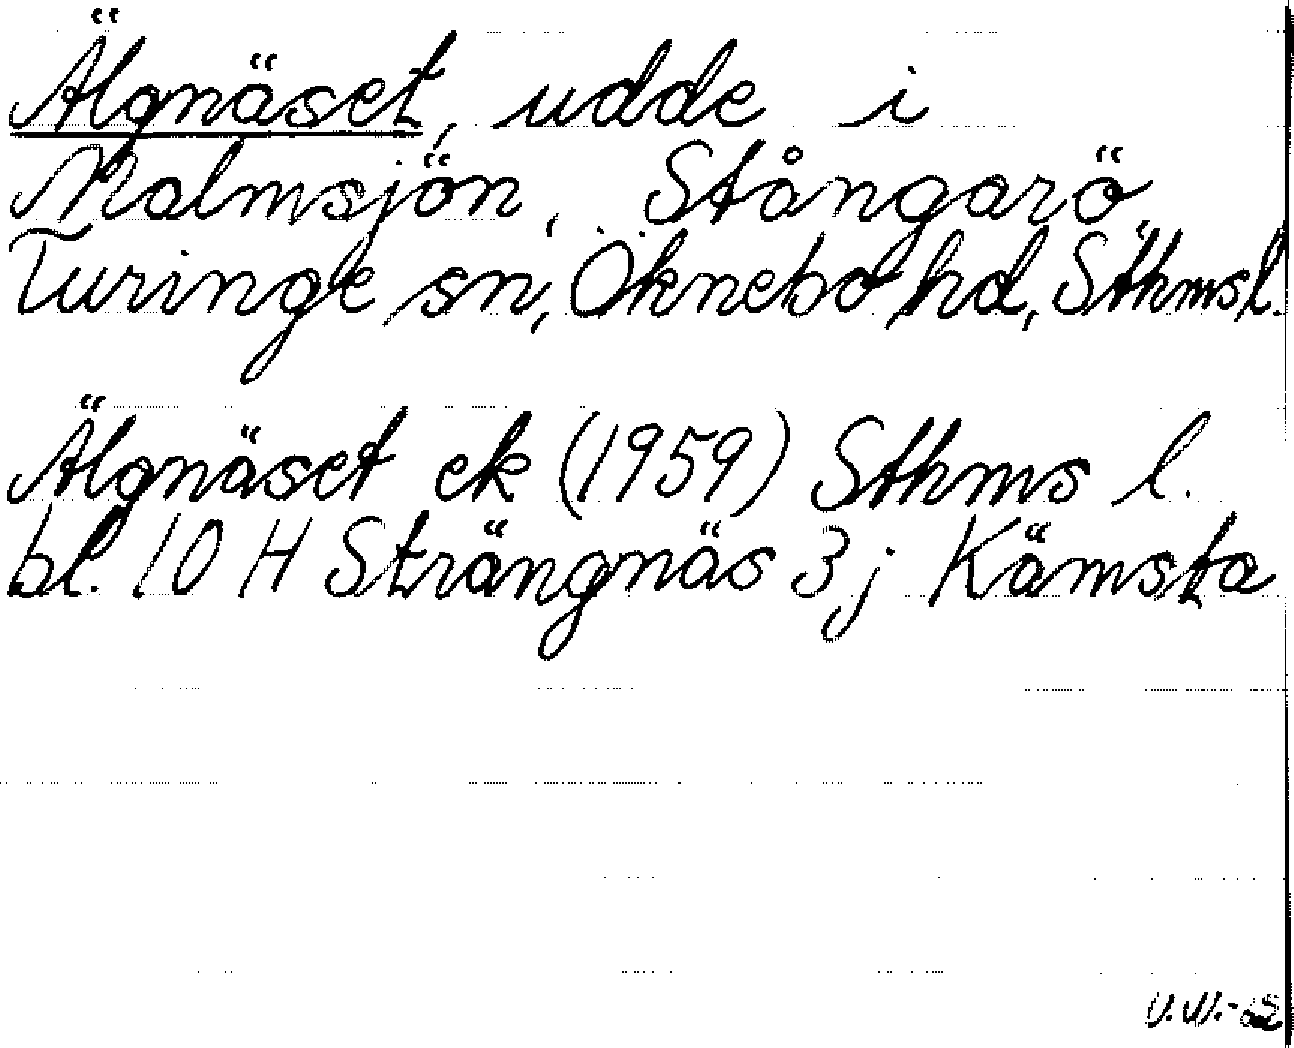 Älgnäset, udde i
Malmsjön, Stångarö,
Turinge sn, Öknebo hd, Sthmsl.
Älgnäset ek (1959) Sthms l.
bl. 10 H Strängnäs 3 j Kämsta